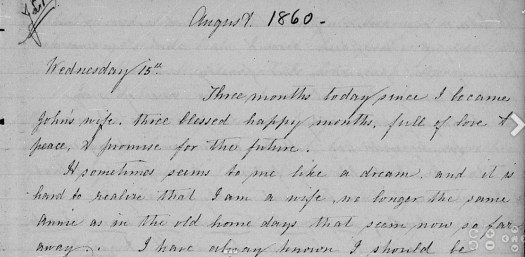 August. 1860 -
Wednesday 15th.
Three months today since I became
John's wife. three blessed happy months, full of love &
peace, & promise for the future.
It sometimes seems to me like a dream, and it is
hard to realize that I am a wife, no longer the same
Annie as in the old home days that seem now so far
away. I have alway known I should be